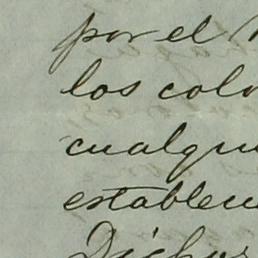 por el
los colo
cualqu
establec
Dichos